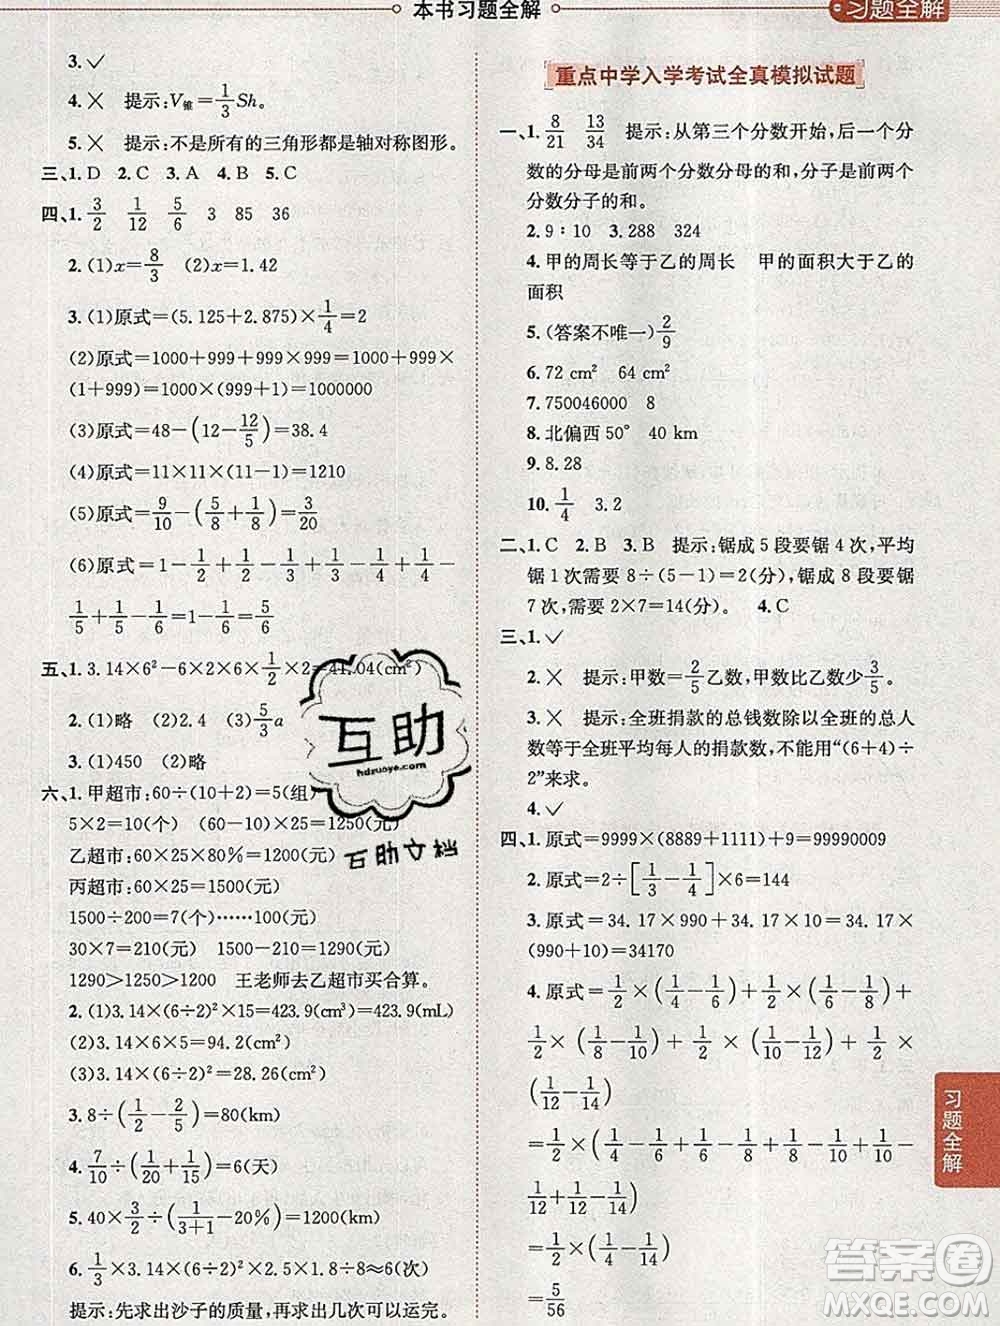 本书习题全解
习题全解
3.✓
4.✕ 提示:V锥=1/3Sh。
5.✕ 提示:不是所有的三角形都是轴对称图形。
三、1.D 2.C 3.A 4.B 5.C
四、1. 3/2 1/12 5/6 3 85 36
2.(1)x=8/3 (2)x=1.42
3.(1)原式=(5.125+2.875)×1/4=2
(2)原式=1000+999+999×999=1000×
(1+999)=1000×(999+1)=1000000
(3)原式=48-(12-12/5)=38.4
(4)原式=11×11×(11-1)=1210
(5)原式=9/10-(5/8+1/8)=3/20
(6)原式=1-1/2+1/2-1/3+1/3-1/4+1/4-
1/5+1/5-1/6=1-1/6=5/6
五、1.3.14×6²-6×2×6×1/2×2=41.04(cm²)
2.(1)略 (2)2.4 (3)5/3a
3.(1)450 (2)略
六、1.甲超市:60÷(10+2)=5(组)
5×2=10(个) (60-10)×25=1250(元)
乙超市:60×25×80%=1200(元)
丙超市:60×25=1500(元)
1500÷200=7(个)……100(元)
30×7=210(元) 1500-210=1290(元)
1290>1250>1200 王老师去乙超市买合算。
2.(1)3.14×(6÷2)²×15=423.9(cm³)=423.9(mL)
(2)3.14×6×5=94.2(cm²)
(3)3.14×(6÷2)²=28.26(cm²)
3.8÷(1/2-2/5)=80(km)
4.7/10÷(1/20+1/15)=6(天)
5.40×3/2÷(1/(3+1)-20%)=1200(km)
6.1/3×3.14×(4÷2)²×1.5×1.7÷2÷8≈6(次)
提示:先求出沙子的质量,再求出几次可以运完。
重点中学入学考试全真模拟试题
一、1. 8/21 13/34 提示:从第三个分数开始,后一个分
数的分母是前两个分数分母的和,分子是前两个
分数分子的和。
2.9∶10 3.288 324
4.甲的周长等于乙的周长 甲的面积大于乙的
面积
5.(答案不唯一)2/9
6.72 cm² 64 cm²
7.750046000 8
8.北偏西50° 40 km
9.8.28
10. 1/4 3.2
二、1.C 2.B 3.B 提示:锯成5段要锯4次,平均
锯1次需要8÷(5-1)=2(分),锯成8段要锯
7次,需要2×7=14(分)。 4.C
三、1.✓
2.✕ 提示:甲数=2/5乙数,甲数比乙数少3/5。
3.✕ 提示:全班捐款的总钱数除以全班的总人
数等于全班平均每人的捐款数,不能用“(6+4)÷
2”来求。
4.✓
四、1.原式=9999×(8889+1111)+9=99990009
2.原式=2÷[1/3-1/4]×6=144
3.原式=34.17×990+34.17×10=34.17×
(990+10)=34170
4.原式=1/2×(1/2-1/4)+1/2×(1/4-1/6)+1/2×(1/6-1/8)+
1/2×(1/8-1/10)+1/2×(1/10-1/12)+1/2×
(1/12-1/14)
=1/2×(1/2-1/4+1/4-1/6+1/6-1/8+1/8-1/10+1/10-
1/12+1/12-1/14)
=1/2×(1/2-1/14)
=5/56
习题全解
互助
hdzuoye.com
互助文档
答案圈
MXQE.COM